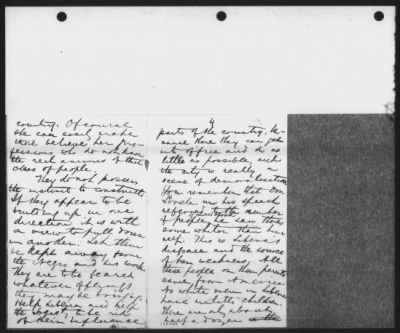 country. Of course
she can easily make
them believe her pro-
fessions who do not know
the real animus of that
class of people.
They do not possess
the instinct to construct.
If they appear to be
building up in one
direction it is with
a view to pull down
in another. Let them
be kept away from
the Negro and his work
they are to be feared
whatever offerings
they may bring.
help Liberia and with
the object, to be rid
of their influence
4
parts of the country, be-
cause there they can get
into office and do as
little as possible, and
the city is really a
scene of demoralization
You remember that
in his speech
the number
of people he saw there
some whiter than him-
self. This is Liberia's
disgrace and the source
of her weakness. All
these people or their parents
came from America
No white men in Liberia
have mulatto children.
There are only about
half a dozen